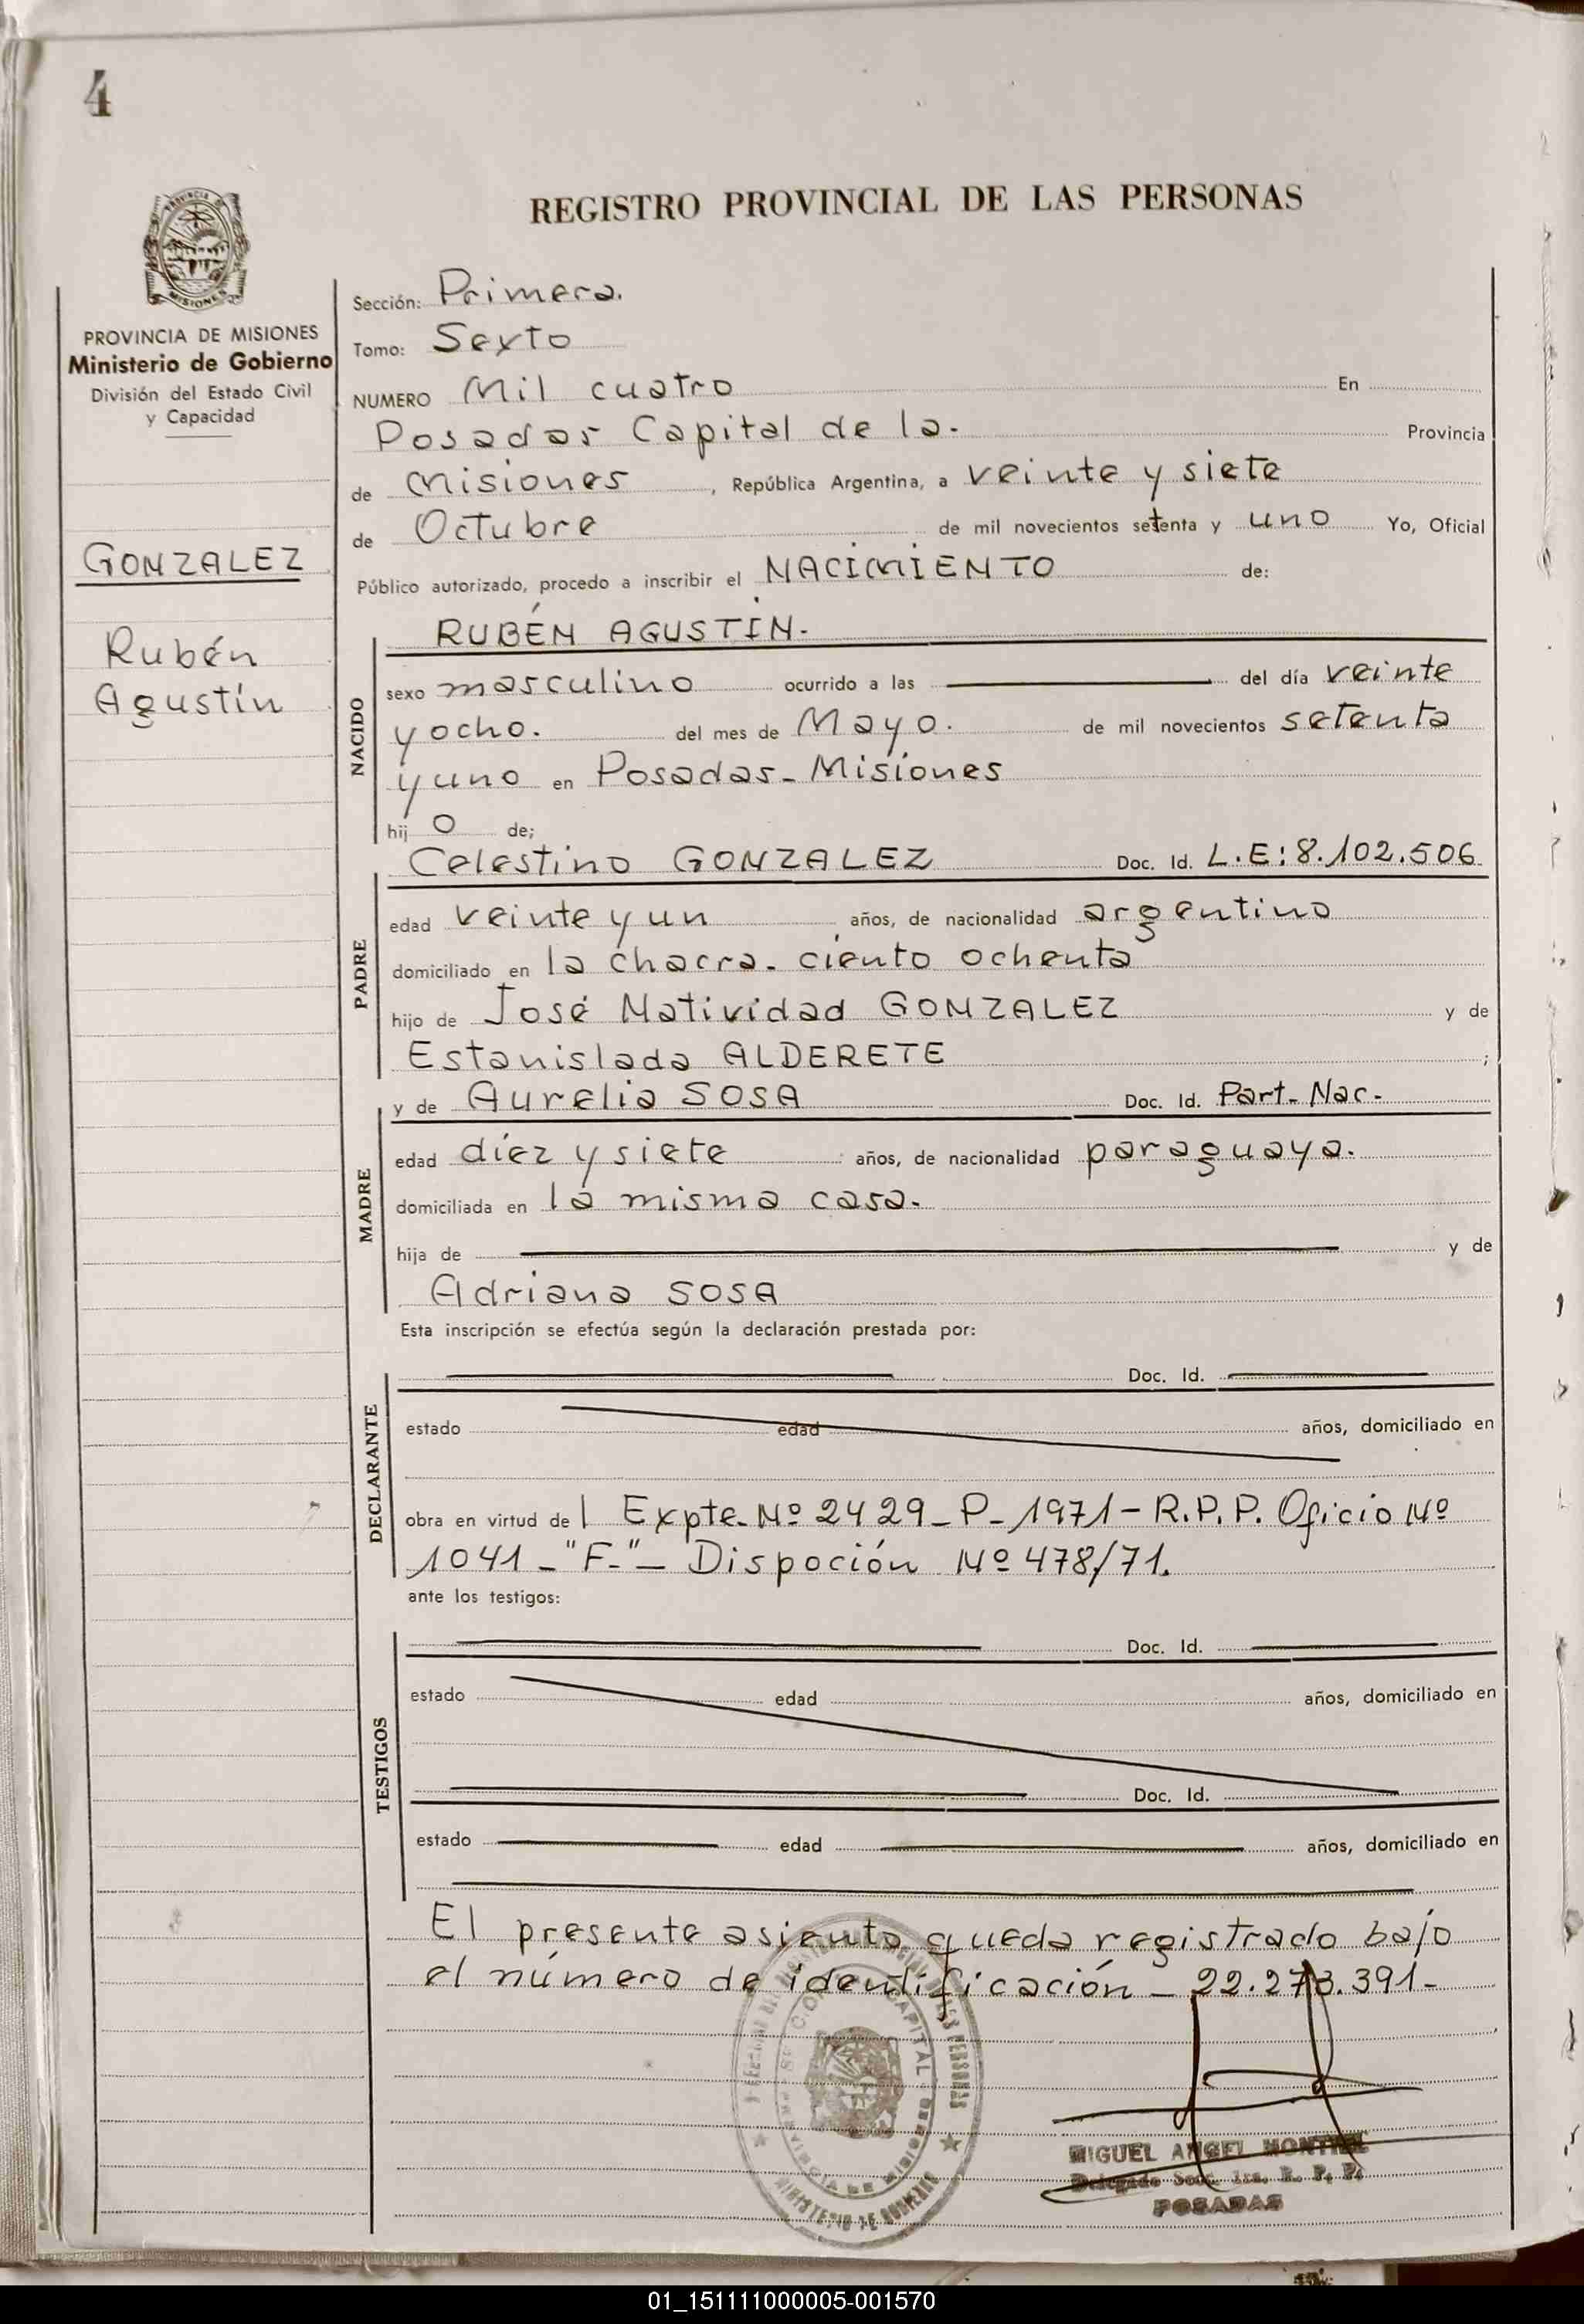 4
REGISTRO PROVINCIAL DE LAS PERSONAS
PROVINCIA DE MISIONES
Ministerio de Gobierno
División del Estado Civil
y Capacidad
GONZALEZ
Rubén
Agustín
Sección: Primera.
Tomo: Sexto
NUMERO Mil cuatro En
Posadas Capital de la. Provincia
de Misiones, República Argentina, a veinte y siete
de Octubre de mil novecientos setenta y uno Yo, Oficial
Público autorizado, procedo a inscribir el NACIMIENTO de:
NACIDO
RUBÉN AGUSTÍN.
sexo masculino ocurrido a las del día veinte
y ocho. del mes de Mayo. de mil novecientos setenta
y uno en Posadas - Misiones
hij o de;
PADRE
Celestino GONZALEZ Doc. Id. L.E: 8.102.506
edad veinte y un años, de nacionalidad argentino
domiciliado en la chacra. ciento ochenta
hijo de José Natividad GONZALEZ y de
Estanislada ALDERETE ;
MADRE
y de Aurelia SOSA Doc. Id. Part. Nac.
edad diez y siete años, de nacionalidad paraguaya.
domiciliada en la misma casa.
hija de y de
Adriana SOSA
Esta inscripción se efectúa según la declaración prestada por:
DECLARANTE
Doc. Id.
estado edad años, domiciliado en
obra en virtud de l Expte. Nº 2429 - P - 1971 - R.P.P. Oficio Nº
1041 - "F." - Dispoción Nº 478/71.
ante los testigos:
TESTIGOS
Doc. Id.
estado edad años, domiciliado en
Doc. Id.
estado edad años, domiciliado en
El presente asiento queda registrado bajo
el número de identificación - 22.273.391-
MIGUEL ANGEL MONTIEL
Delegado Secc. 1ra. R. P. P.
POSADAS
01_151111000005-001570